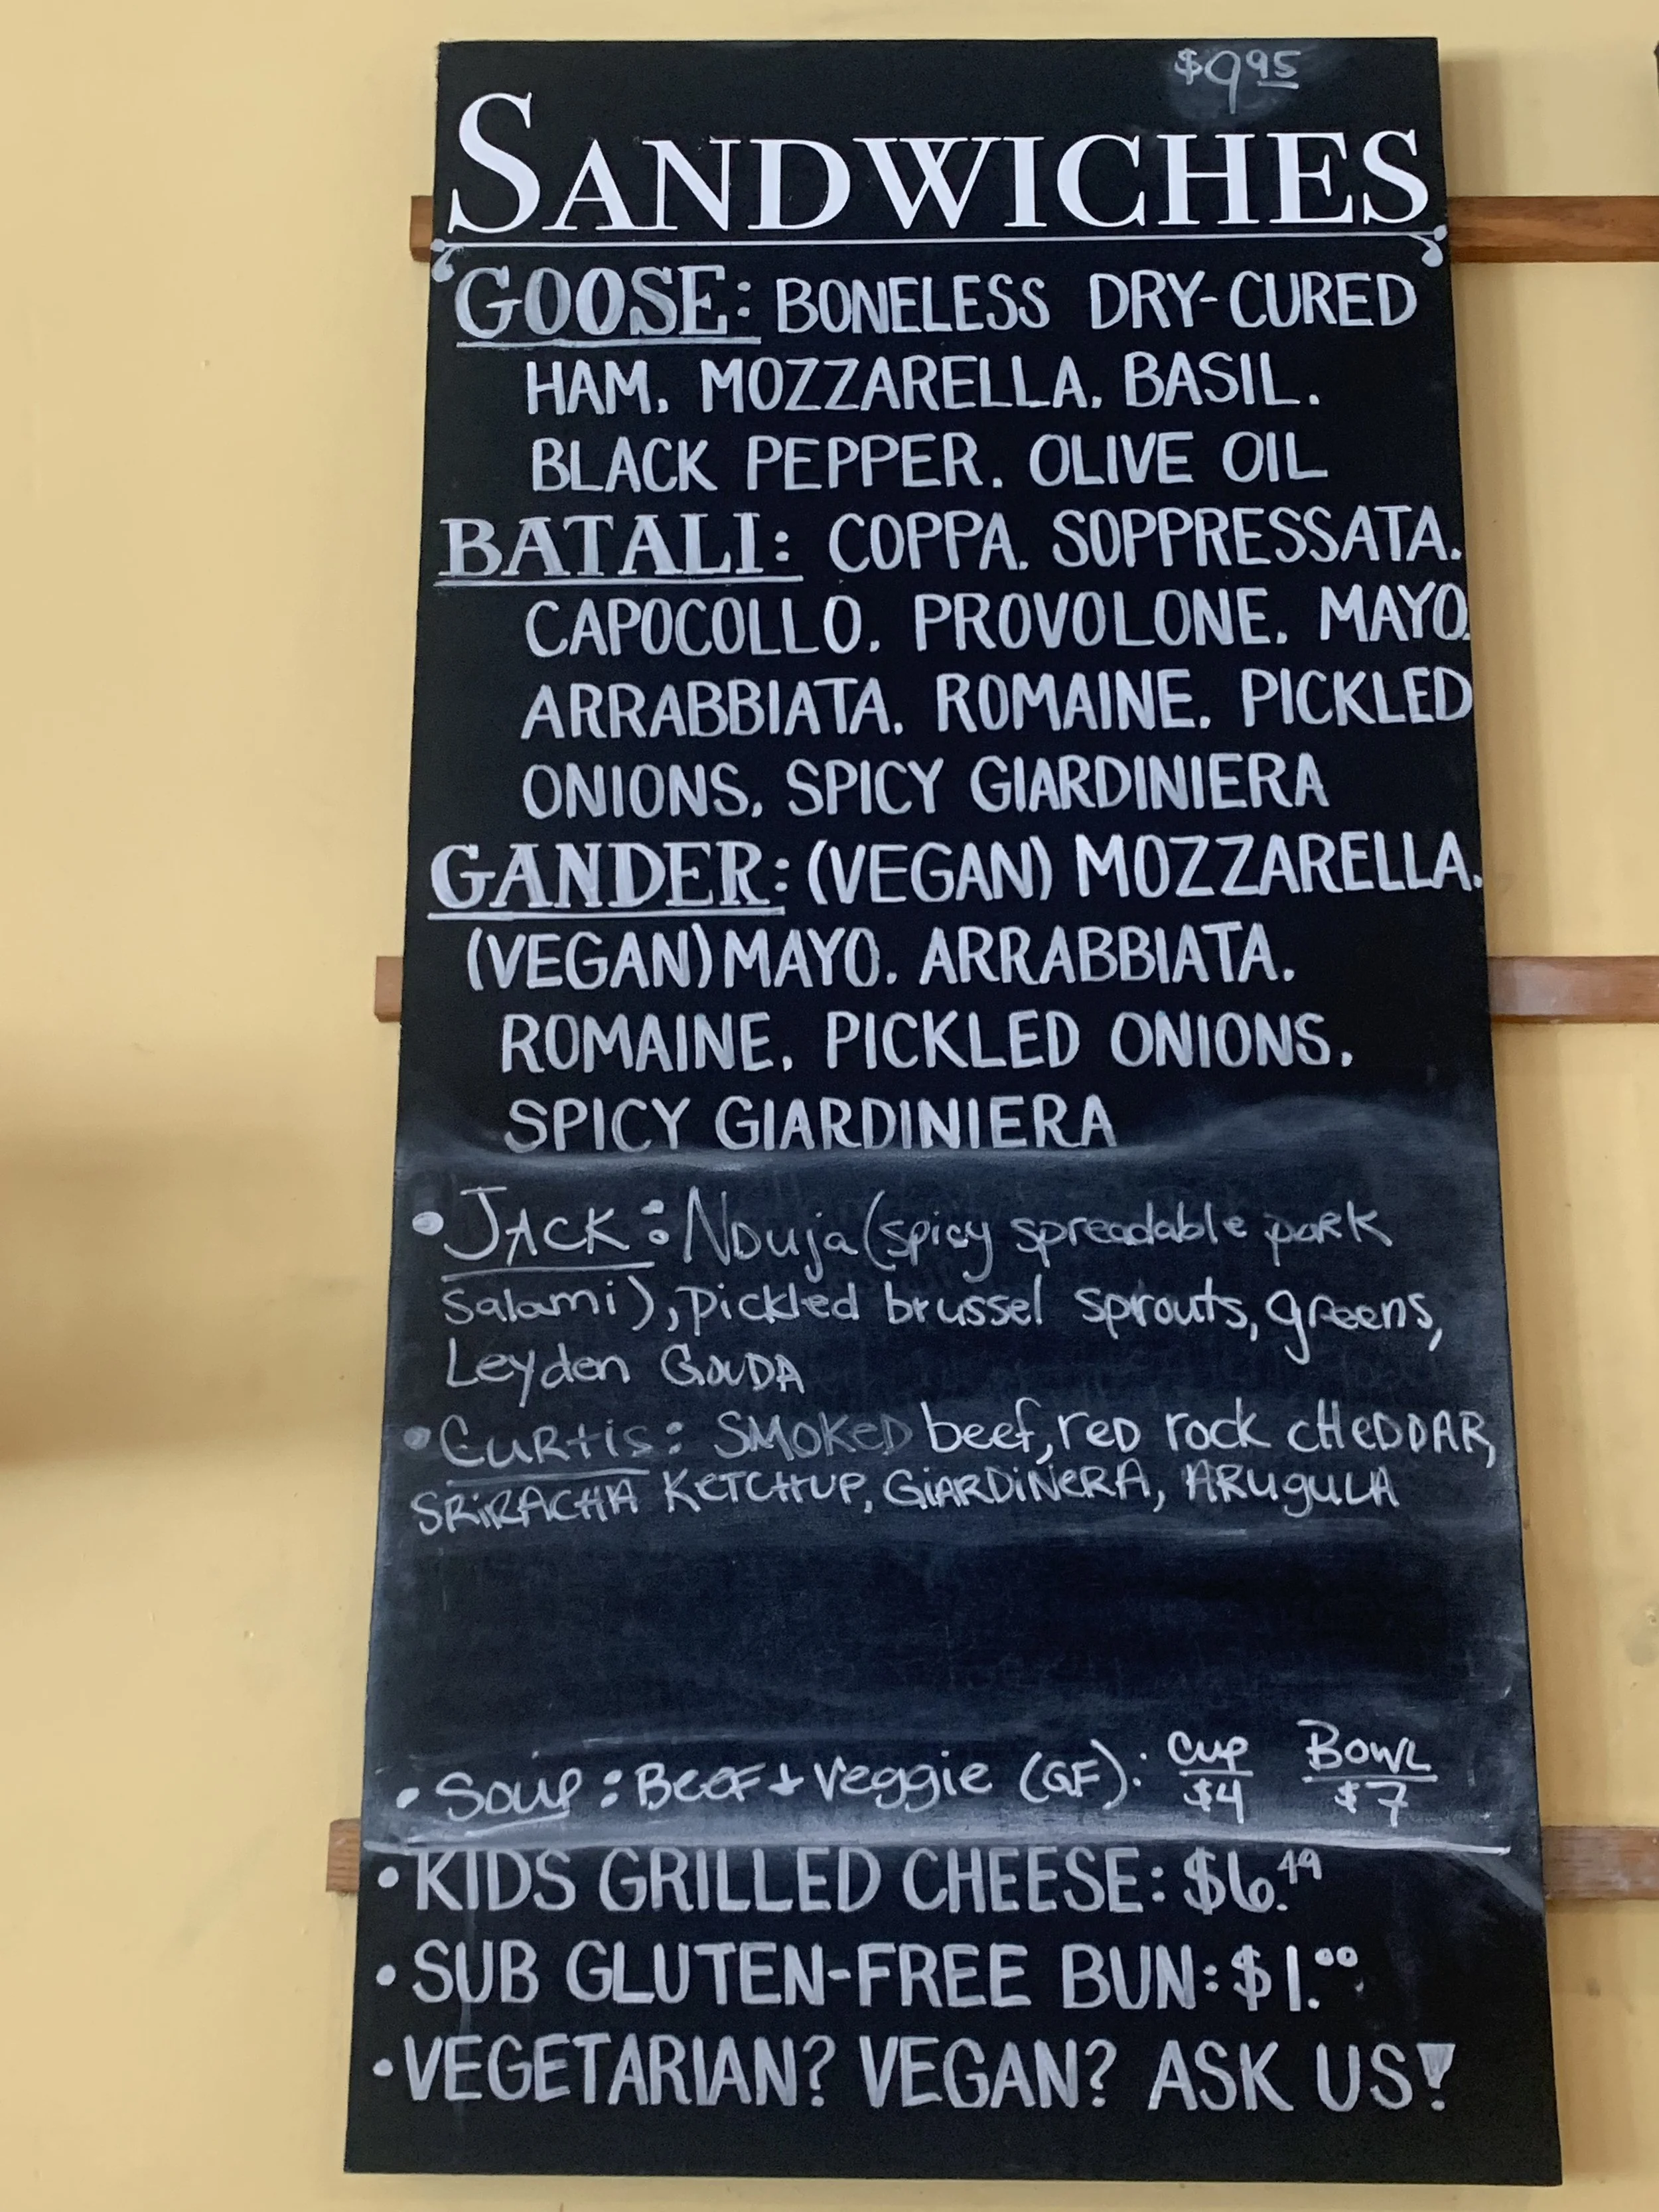 $9.95
SANDWICHES
GOOSE: BONELESS DRY-CURED
HAM. MOZZARELLA. BASIL.
BLACK PEPPER. OLIVE OIL
BATALI: COPPA. SOPPRESSATA.
CAPOCOLLO. PROVOLONE. MAYO.
ARRABBIATA. ROMAINE. PICKLED
ONIONS. SPICY GIARDINIERA
GANDER: (VEGAN) MOZZARELLA.
(VEGAN) MAYO. ARRABBIATA.
ROMAINE. PICKLED ONIONS.
SPICY GIARDINIERA
• JACK: NDuja (spicy spreadable pork
salami), pickled brussel sprouts, greens,
Leyden GOUDA
• CURtis: SMOKeD beef, reD rock cHeDDAR,
SRiRACHA KeTCHUP, GiARDiNeRA, ARuguLA
• Soup: BeeF + Veggie (GF): Cup Bowl
$4 $7
• KIDS GRILLED CHEESE: $6.49
• SUB GLUTEN-FREE BUN: $1.00
• VEGETARIAN? VEGAN? ASK US!